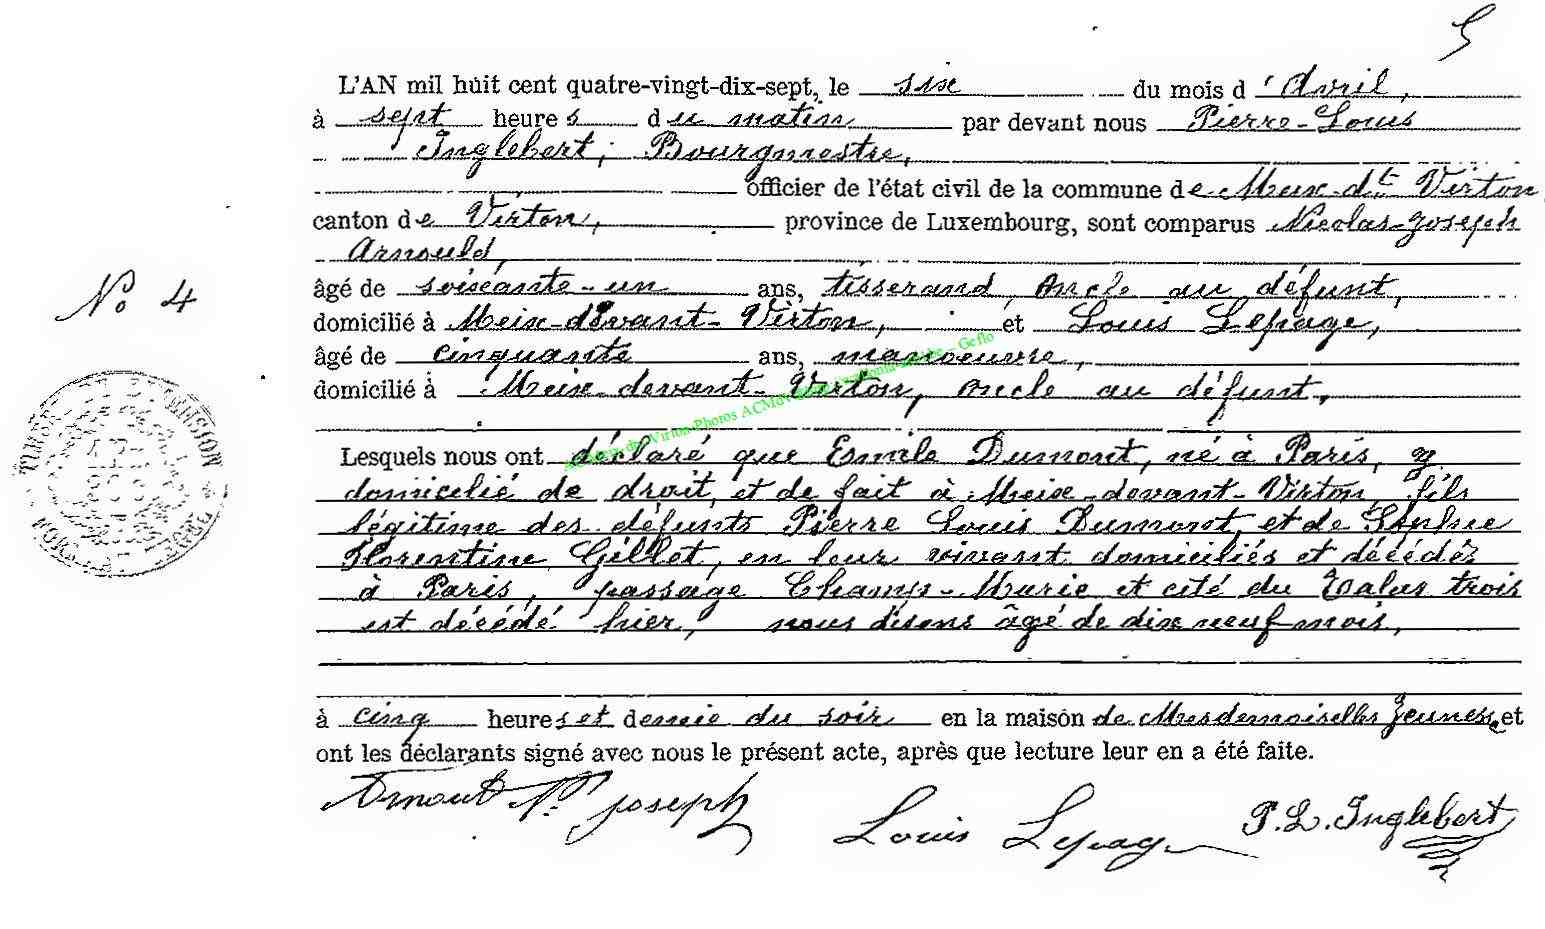 5
L'AN mil huit cent quatre-vingt-dix-sept, le six du mois d'Avril,
à sept heures du matin par devant nous Pierre-Louis
Inglebert, Bourgmestre,
officier de l'état civil de la commune de Meix-dt Virton
canton de Virton, province de Luxembourg, sont comparus Nicolas-Joseph
Arnould,
âgé de soixante-un ans, tisserand, oncle au défunt,
N° 4
domicilié à Meix-devant-Virton, et Louis Lepage,
âgé de cinquante ans, manoeuvre,
domicilié à Meix-devant-Virton, oncle au défunt,
Lesquels nous ont déclaré que Emile Dumont, né à Paris, y
domicilié de droit, et de fait à Meix-devant-Virton, fils
légitime des défunts Pierre Louis Dumont, et de
Florentine Gillet, en leur vivant domiciliés et décédés
à Paris, passage Champ-Marie et cité du Talus trois
est décédé hier, nous disons âgé de dix neuf mois,
à cinq heures et demie du soir en la maison de Mesdemoiselles Jeunesse et
ont les déclarants signé avec nous le présent acte, après que lecture leur en a été faite.
Arnould N. Joseph
Louis Lepage
P. L. Inglebert
TIMBRE EXTENSION